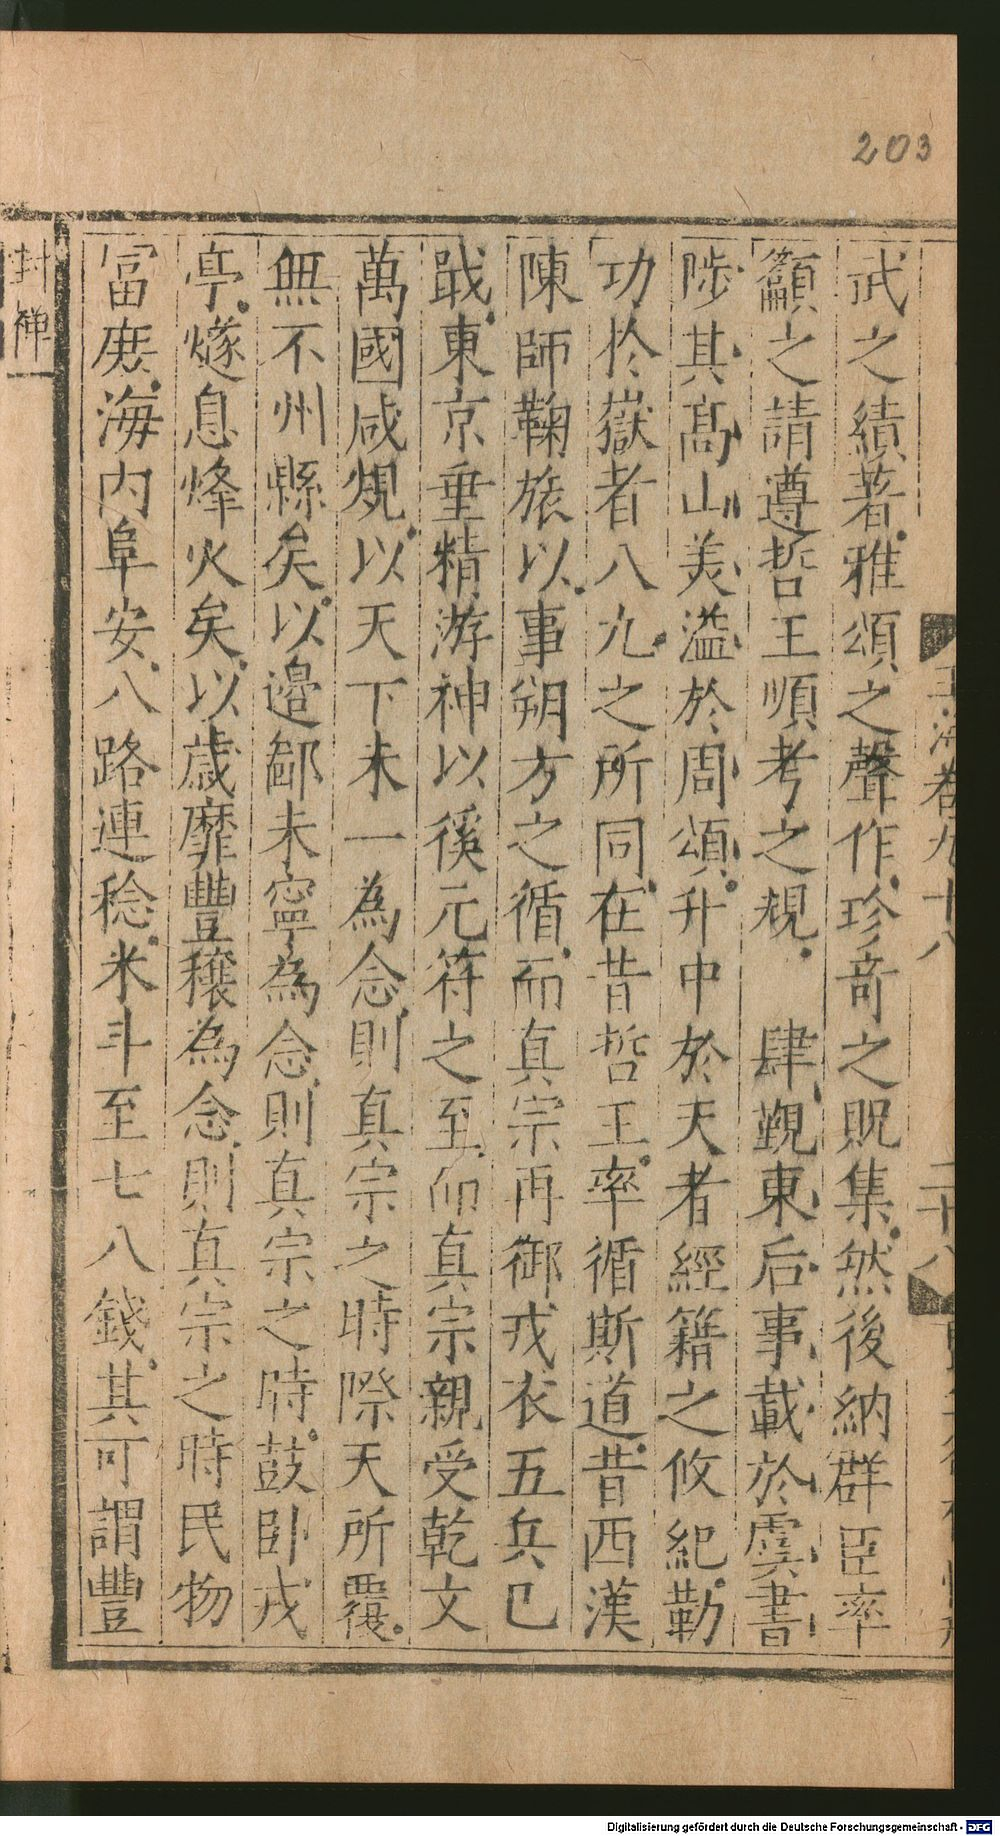 203
玉海卷九十八
二十八
武之績著雅頌之聲作珍奇之貺集然後納群臣率
籲之請遵哲王順考之規　肆覲東后事載於虞書
陟其高山美溢於周頌升中於天者經籍之攸紀勒
功於嶽者八九之所同在昔哲王率循斯道昔西漢
陳師鞠旅以事朔方之循而真宗再御戎衣五兵已
戢東京垂精游神以徯元符之至而真宗親受乾文
萬國咸覩以天下未一為念則真宗之時際天所覆
無不州縣矣以邉鄙未寧為念則真宗之時鼓臥戎
亭燧息烽火矣以歳靡豐穣為念則真宗之時民物
冨庶海内阜安八路連稔米斗至七八錢其可謂豐
封禅
Digitalisierung gefördert durch die Deutsche Forschungsgemeinschaft - DFG